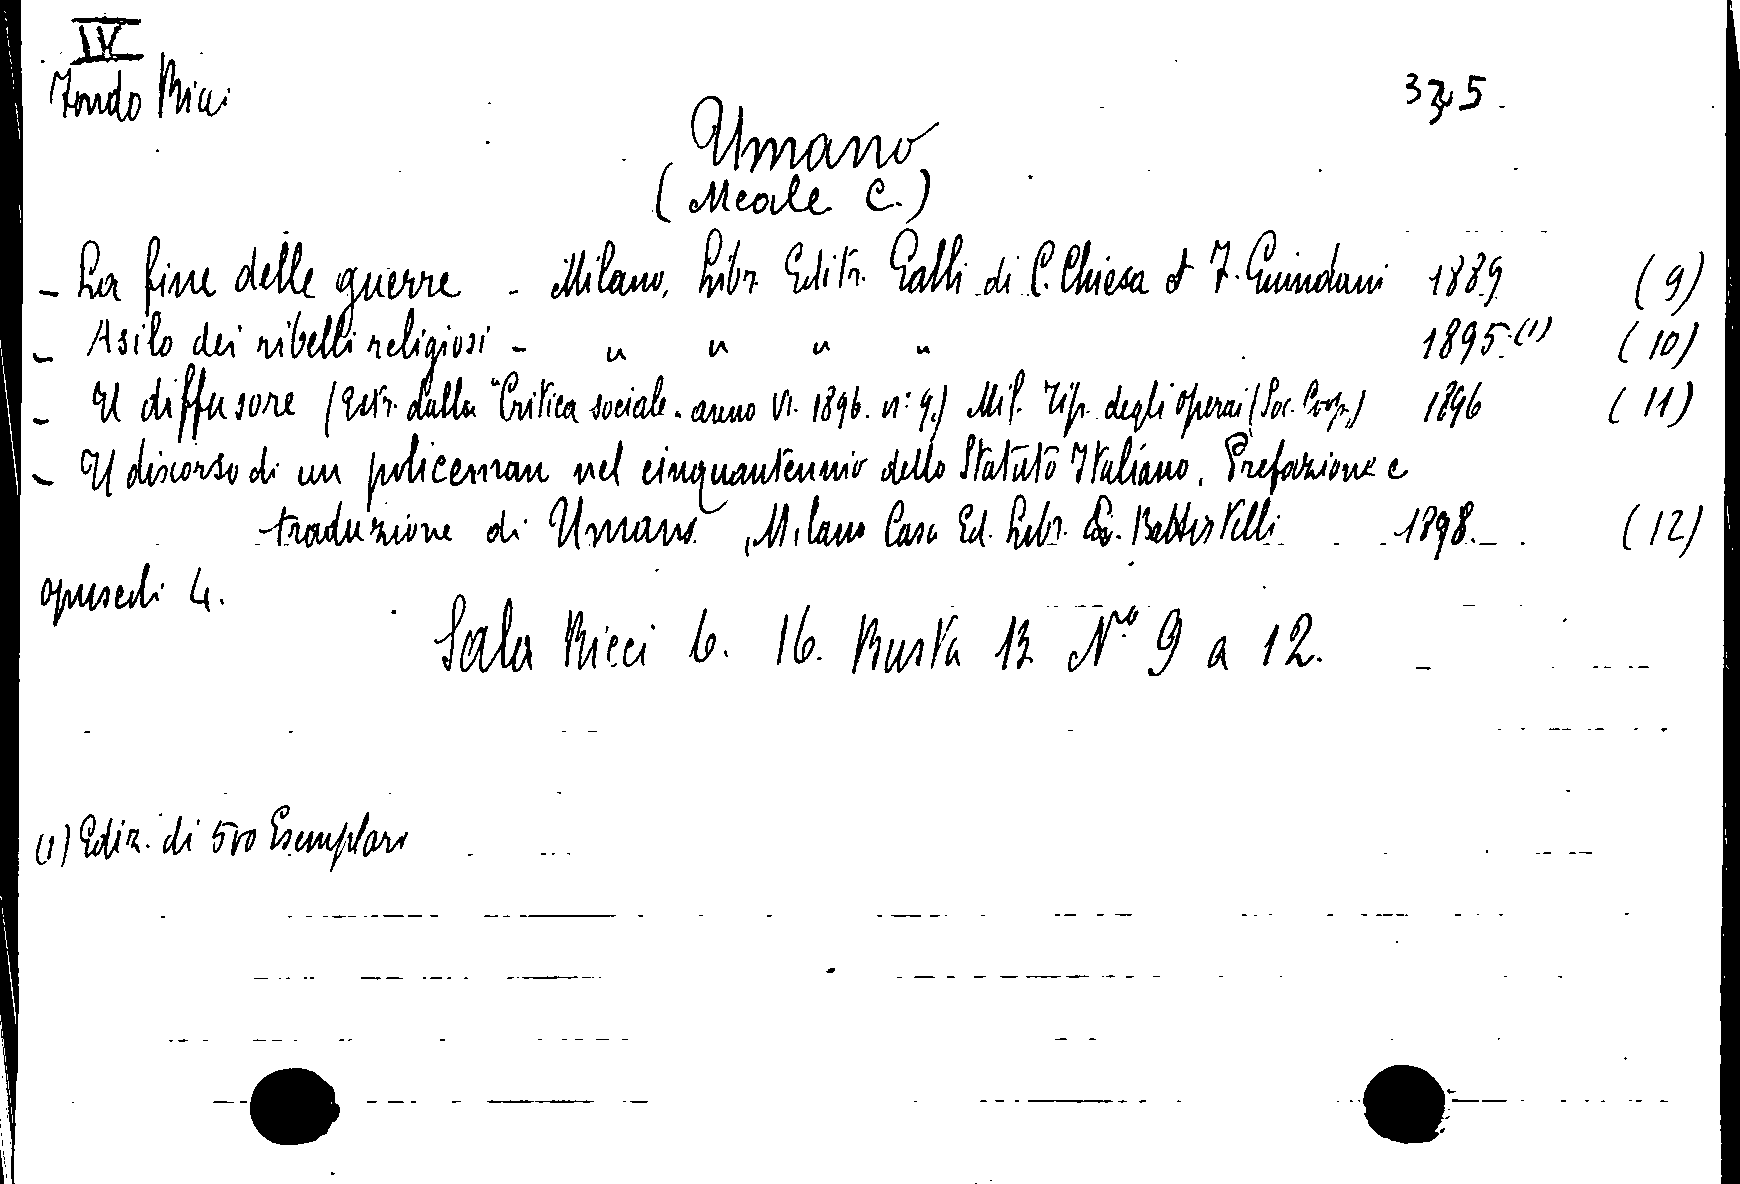 IV
Fondo Ricci
Umano
(Meale C.)
- La fine delle guerre - Milano, Libr. Editr. Galli di C. Chiesa & F. Guindani 1889 (9)
- Asilo dei ribelli religiosi - " " " " 1895 (1) (10)
- Il diffusore (Estr. dalla "Critica sociale - anno VI. 1896. n: 9.) Mil. Tip. degli operai (Soc. Coop.) 1896 (11)
- Il discorso di un policeman nel cinquantennio dello Statuto Italiano. Prefazione e
traduzione di Umano, Milano Casa Ed. Libr. Battistelli 1898. (12)
opuscoli 4.
Sala Ricci 6. 16. Busta 13 N.º 9 a 12.
(1) Ediz. di 500 Esemplari